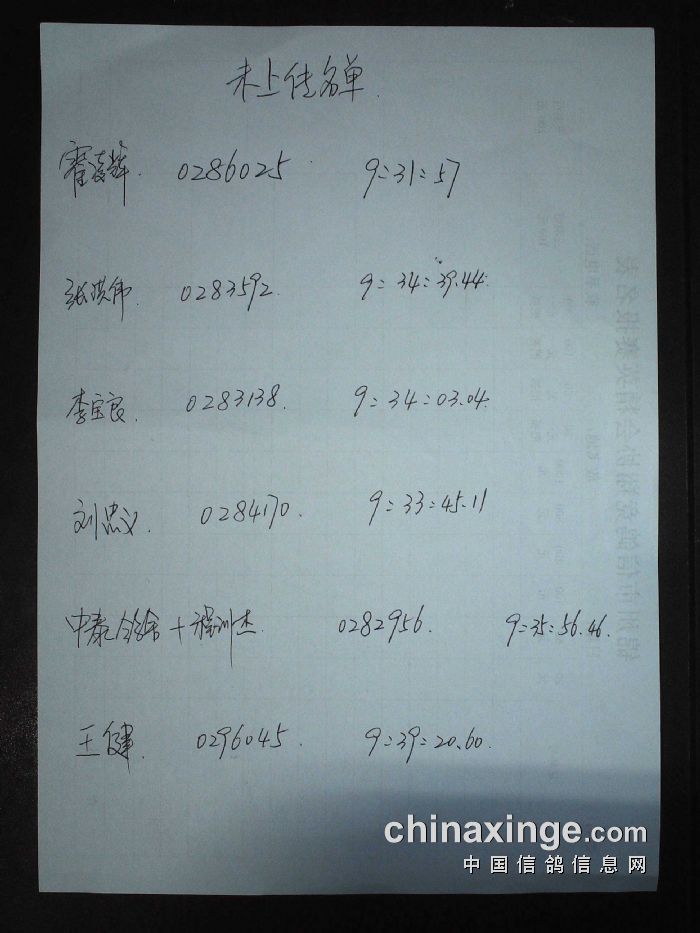 未上传名单.
霍凌辉. 0286025 9:31:57
张洪伟. 0283592. 9:34:39.44.
李宝良. 0283138. 9:34:03.04.
刘忠义. 0284170. 9:33:45.11
中泰 + 程训杰. 0282956. 9:35:56.46.
王健. 0296045. 9:39:20.60.
chinaxinge.com
中国信鸽信息网